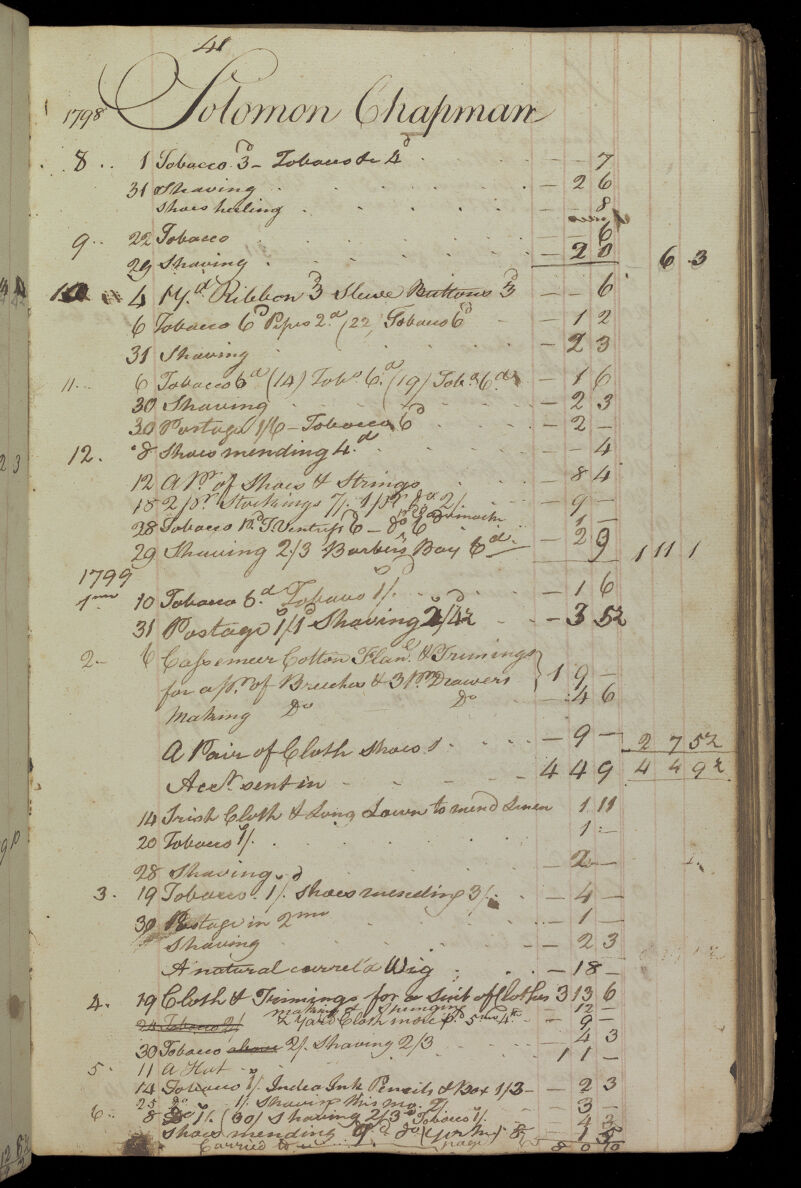 41
1798 Solomon Chapman
8 .. 1 Tobacco 3d - Tobacco &c 4d - - 7
31 Shaving - 2 6
Shoes heeling - - 8
9 .. 22 Tobacco - - 6
29 Shaving - 2 0 6 3
10 4 1 Yd Ribbon 3d Sleve Buttons 3d - - 6
6 Tobacco 6d Pipes 2d (22) Tobacco 6d - 1 2
31 Shaving - 2 3
11 .. 6 Tobacco 6d (14) Tobo 6d (19) Tobo 6d - 1 6
30 Shaving - 2 3
30 Postage 1/6 - Tobacco 6d - 2 -
12 . 8 Shoes mending 4d - - 4
12 A Pr of Shoes & Strings - 8 4
18 2 pr Stockings 7/. 1 pr do 2/. - 9 -
28 Tobacco 6 - do 6 - 1 -
29 Shaving 2/3 Barbers Boy 6d - 2 9 1 11 1
1799
1 mo 10 Tobacco 6d Tobacco 1/. - 1 6
31 Postage 1/1 Shaving 2/4½ - 3 5½
2 - 6 Cassemeer Cotton Flanl & Trimings
for a pr of Breeches & 3 Pr Drawers } 1 9 -
Making Do Do - 4 6
A Pair of Cloth Shoes - 9 - 2 7 5½
Acct sent in 4 4 9 4 4 9½
14 Irish Cloth & Long Lawn to mend Linen 1 11
20 Tobacco 1/. 1 -
28 Shaving - 2 -
3 . 19 Tobacco 1/. Shoes mending 3/. - 4 -
30 Postage in 2 mo - 1 -
Shaving - 2 3
A natural currel'd Wig - 18 -
4 . 19 Cloth & Trimings for a Suit of Clothes 3 13 6
making & Spunging - 12 -
24 Tobacco 2/ ½ Yard Cloth more 5 mo 4th - 9 -
30 Tobacco above 2/. Shaving 2/3 - 4 3
5 . 11 A Hat 1 1 -
14 Tobacco 1/. India Ink Pencils & Box 1/3 - 2 3
25 Do 1/. Shaving this mo 2/ - 3 -
6 . 8 Do 1/. (30) Shaving 2/3 Tobacco 1/. 4 3
Shoes mending 9d do 8 - 1 5
Carried to page 65 8 0 10